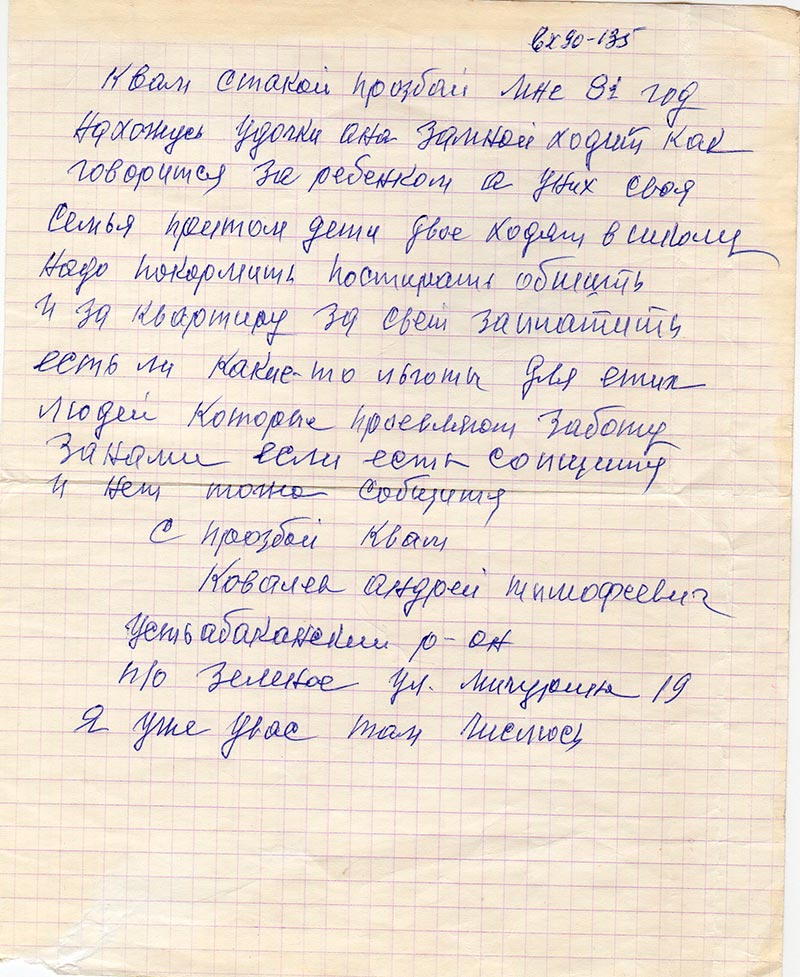 вх90-135
Квам стакой прозбай мне 81 год
нахожусь удочки ана замной ходит как
говорится за ребенком а уних своя
семья притом дети двое ходят в школу
надо покормить постирать обшить
и за квартиру за свет запатить
есть ли какие-то льготы для етих
людей которые проевляют заботу
занами если есть сопщите
и нет тожа собщите
с прозбай квам
Ковалев андрей тимофеевич
устьабаканский р-он
п/о зеленое ул. мичурина 19
Я уже увас там числюсь